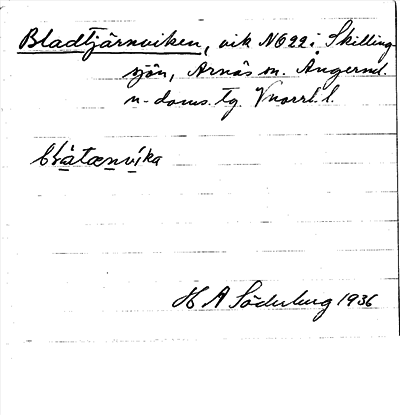 Bladtjärnviken, vik NO 22 i Skilling-
sjön, Arnäs sn. Ångerml.
n. doms. tg. Vnorrl. l.
blátænvíka
H A Söderberg 1936